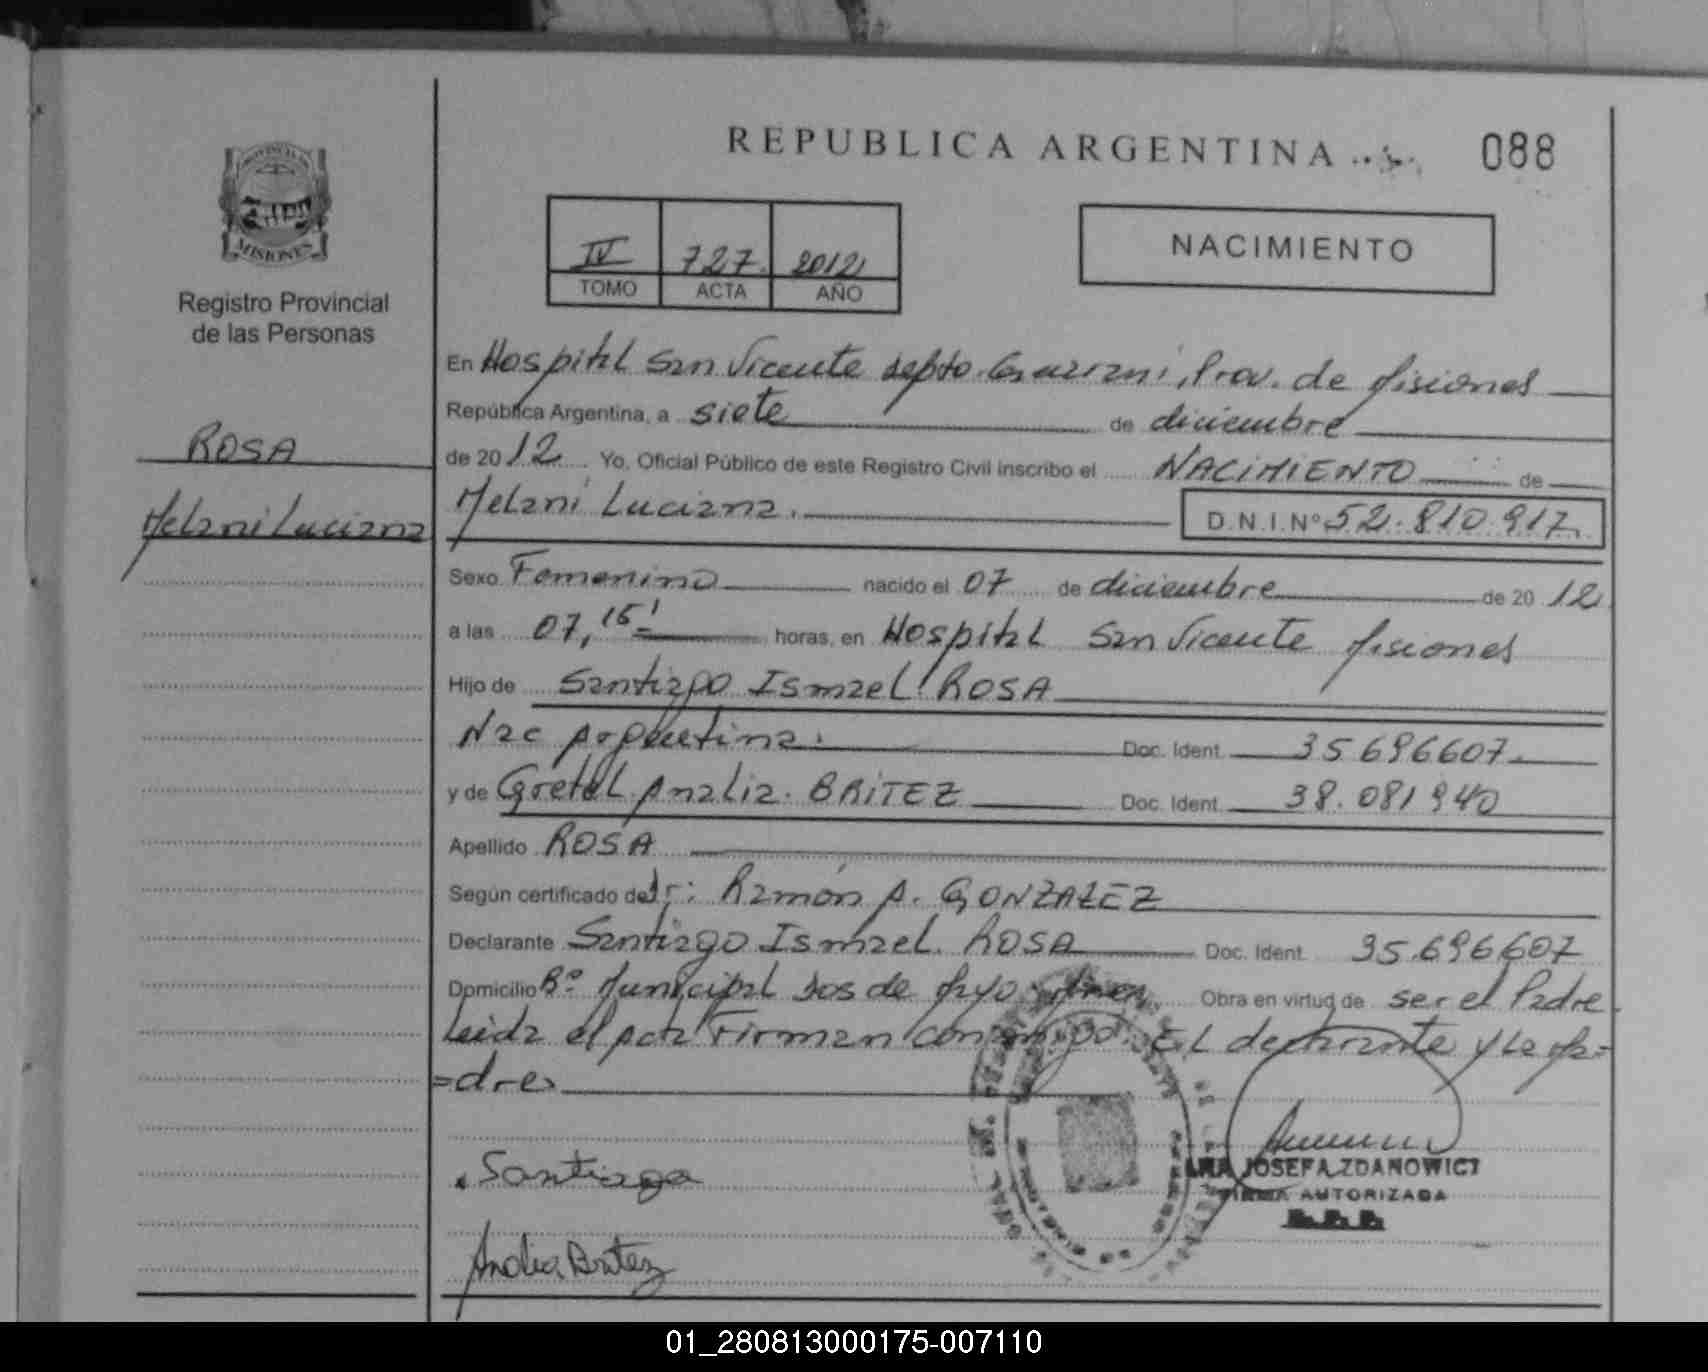 REPUBLICA ARGENTINA
088
PROVINCIA DE
MISIONES
Registro Provincial
de las Personas
IV 727. 2012
TOMO ACTA AÑO
NACIMIENTO
ROSA
Melani Luciana
En Hospital San Vicente depto. Guarani, Prov. de Misiones
República Argentina, a siete de diciembre
de 2012 Yo, Oficial Público de este Registro Civil inscribo el NACIMIENTO de
Melani Luciana.
D.N.I.Nº 52.810.917.
Sexo Femenino nacido el 07 de diciembre de 2012
a las 07,15' horas, en Hospital San Vicente Misiones
Hijo de Santiago Ismael ROSA
Nac Argentina. Doc. Ident. 35696607.
y de Gretel Analia. BRITEZ Doc. Ident. 38.081940
Apellido ROSA
Según certificado de Dr: Ramón A. GONZALEZ
Declarante Santiago Ismael. ROSA Doc. Ident. 35.696607
Domicilio Bº. Municipal Dos de Mayo Obra en virtud de ser el Padre.
Leida el Acta Firman conmigo. EL declarante y La Ma=
=dre.
Santiago
JOSEFA ZDANOWICZ
FIRMA AUTORIZADA
R.P.P.
Analia Britez
01_280813000175-007110